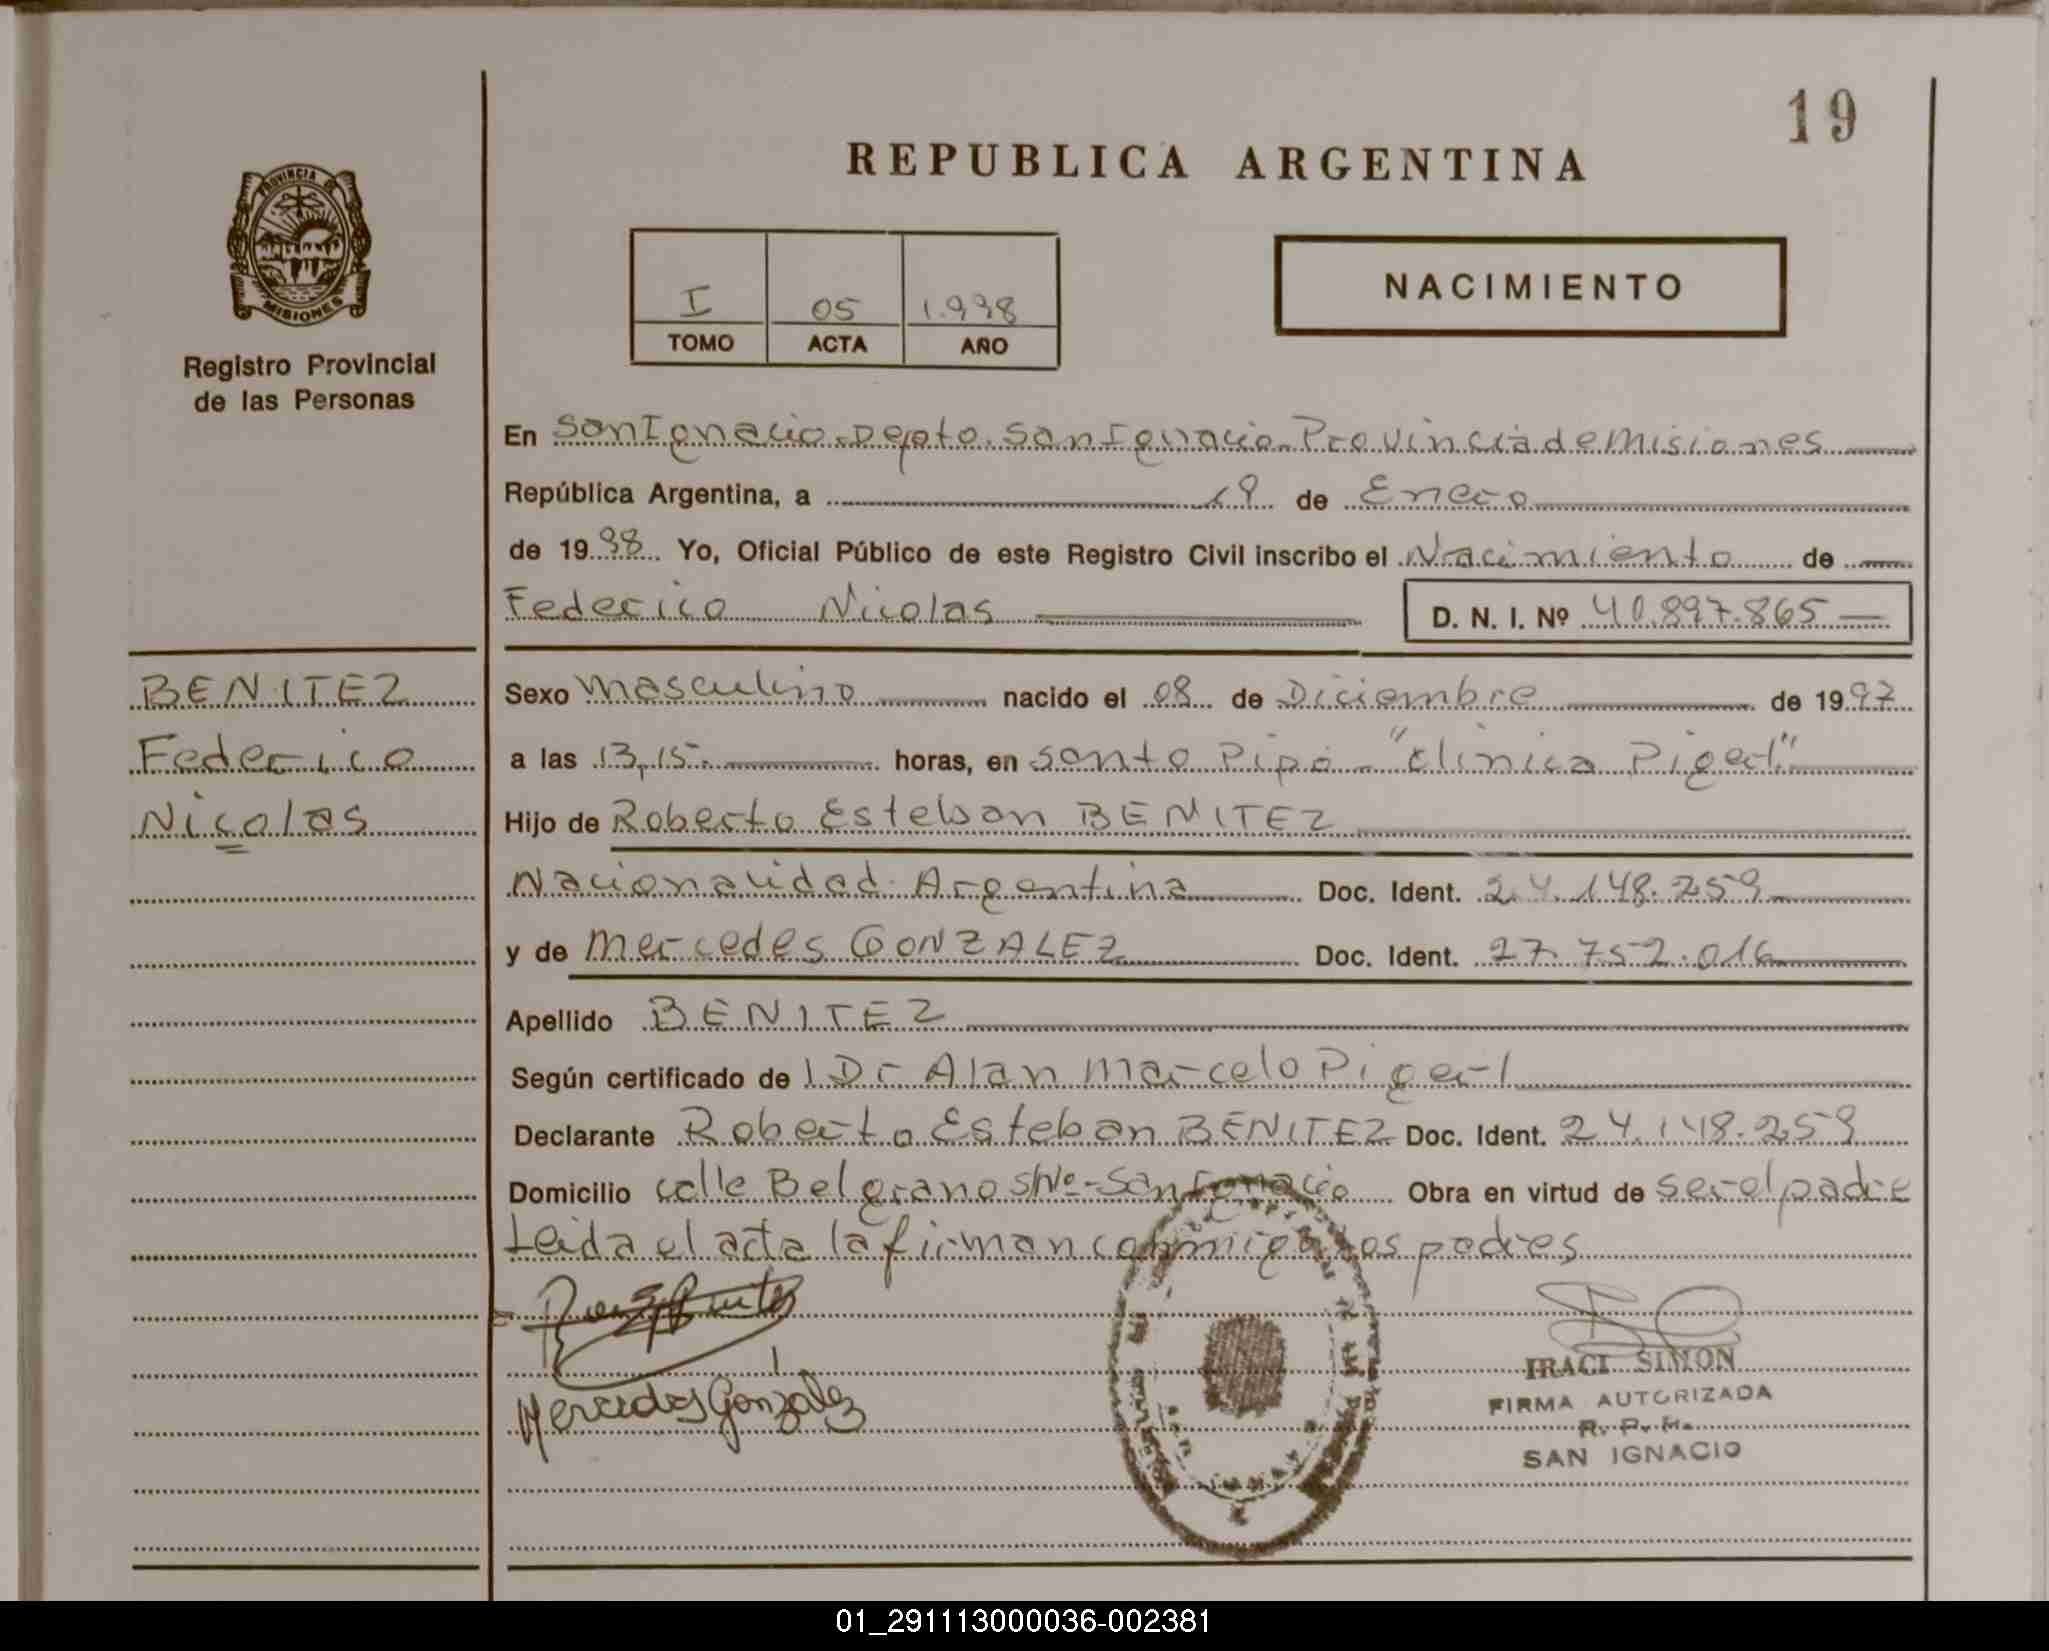 19
REPUBLICA ARGENTINA
PROVINCIA DE
MISIONES
Registro Provincial
de las Personas
I 05 1.998
TOMO ACTA AÑO
NACIMIENTO
En San Ignacio-Depto. San Ignacio-Provincia de Misiones
República Argentina, a 19 de Enero
de 1998 Yo, Oficial Público de este Registro Civil inscribo el Nacimiento de
Federico Nicolas D. N. I. Nº 40.897.865
BENITEZ
Federico
Nicolas
Sexo Masculino nacido el 08 de Diciembre de 1997
a las 13,15. horas, en Santo Pipó - "Clinica Pigerl"
Hijo de Roberto Esteban BENITEZ
Nacionalidad Argentina Doc. Ident. 24.148.259
y de Mercedes GONZALEZ Doc. Ident. 27.752.016
Apellido BENITEZ
Según certificado del Dr Alan Marcelo Pigerl
Declarante Roberto Esteban BENITEZ Doc. Ident. 24.148.259
Domicilio calle Belgrano S/Nº-San Ignacio Obra en virtud de ser el padre
Leida el acta la firman conmigo los padres
Mercedes Gonzalez
IRACI SIMON
FIRMA AUTORIZADA
R. P. M.
SAN IGNACIO
01_291113000036-002381